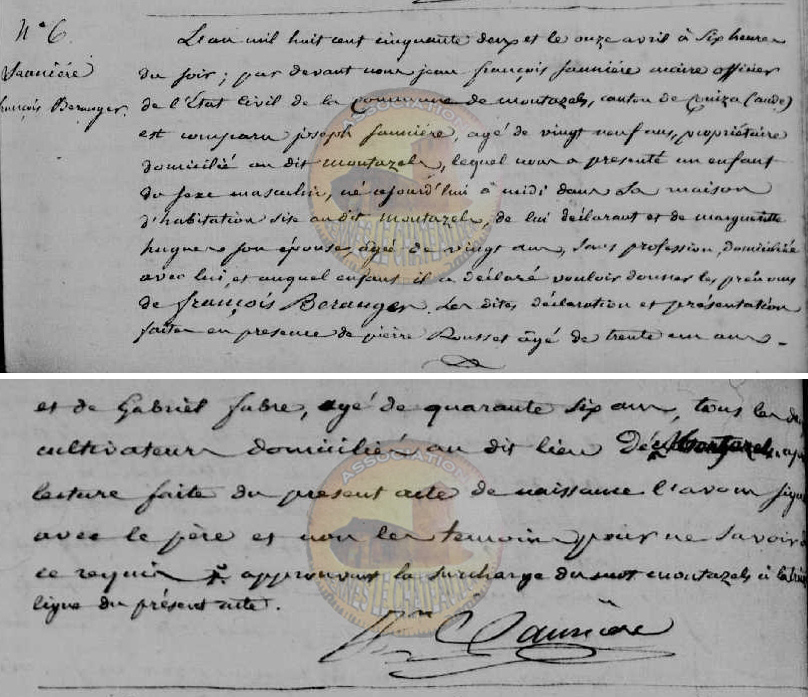 N° 6.
Saunière
françois Beranger.
L'an mil huit cent cinquante deux et le onze avril à six heures
du soir ; par devant nous jean françois saunière maire officier
de l'État Civil de la Commune de montazels, canton de Couiza (aude)
est comparu joseph saunière, agé de vingt neuf ans, propriétaire
domicilié au dit montazels, lequel nous a presenté un enfant
du sexe masculin, né ajourd'hui à midi dans sa maison
d'habitation sise au dit montazels, de lui déclarant et de marguerite
hugues son épouse, agé de vingt ans, sans profession, domiciliée
avec lui, et auquel enfant il a déclaré vouloir donner les prénoms
de françois Beranger. Les dites déclaration et présentation
faites en presence de pierre Rousset âgé de trente un ans.
et de Gabriel fabre, agé de quarante six ans, tous les
cultivateurs domiciliés au dit lieu Dé Montazels.
lecture faite du présent acte de naissance l'avons signé
avec le père et non les temoins pour ne savoir
ce requis approuvant la surcharge du mot montazels à la
ligne du présent acte.
Saunière
ASSOCIATION
RENNES LE CHATEAU
ASSOCIATION
RENNES LE CHATEAU